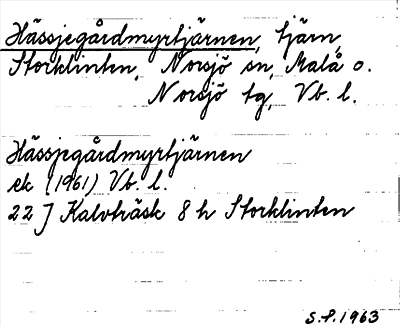 Hässjegårdmyrtjärnen, tjärn,
Storklinten, Norsjö sn, Malå o.
Norsjö tg, Vb. l.
Hässjegårdmyrtjärnen
ek (1961) Vb. l.
22 J Kalvträsk 8 h Storklinten
S.P. 1963